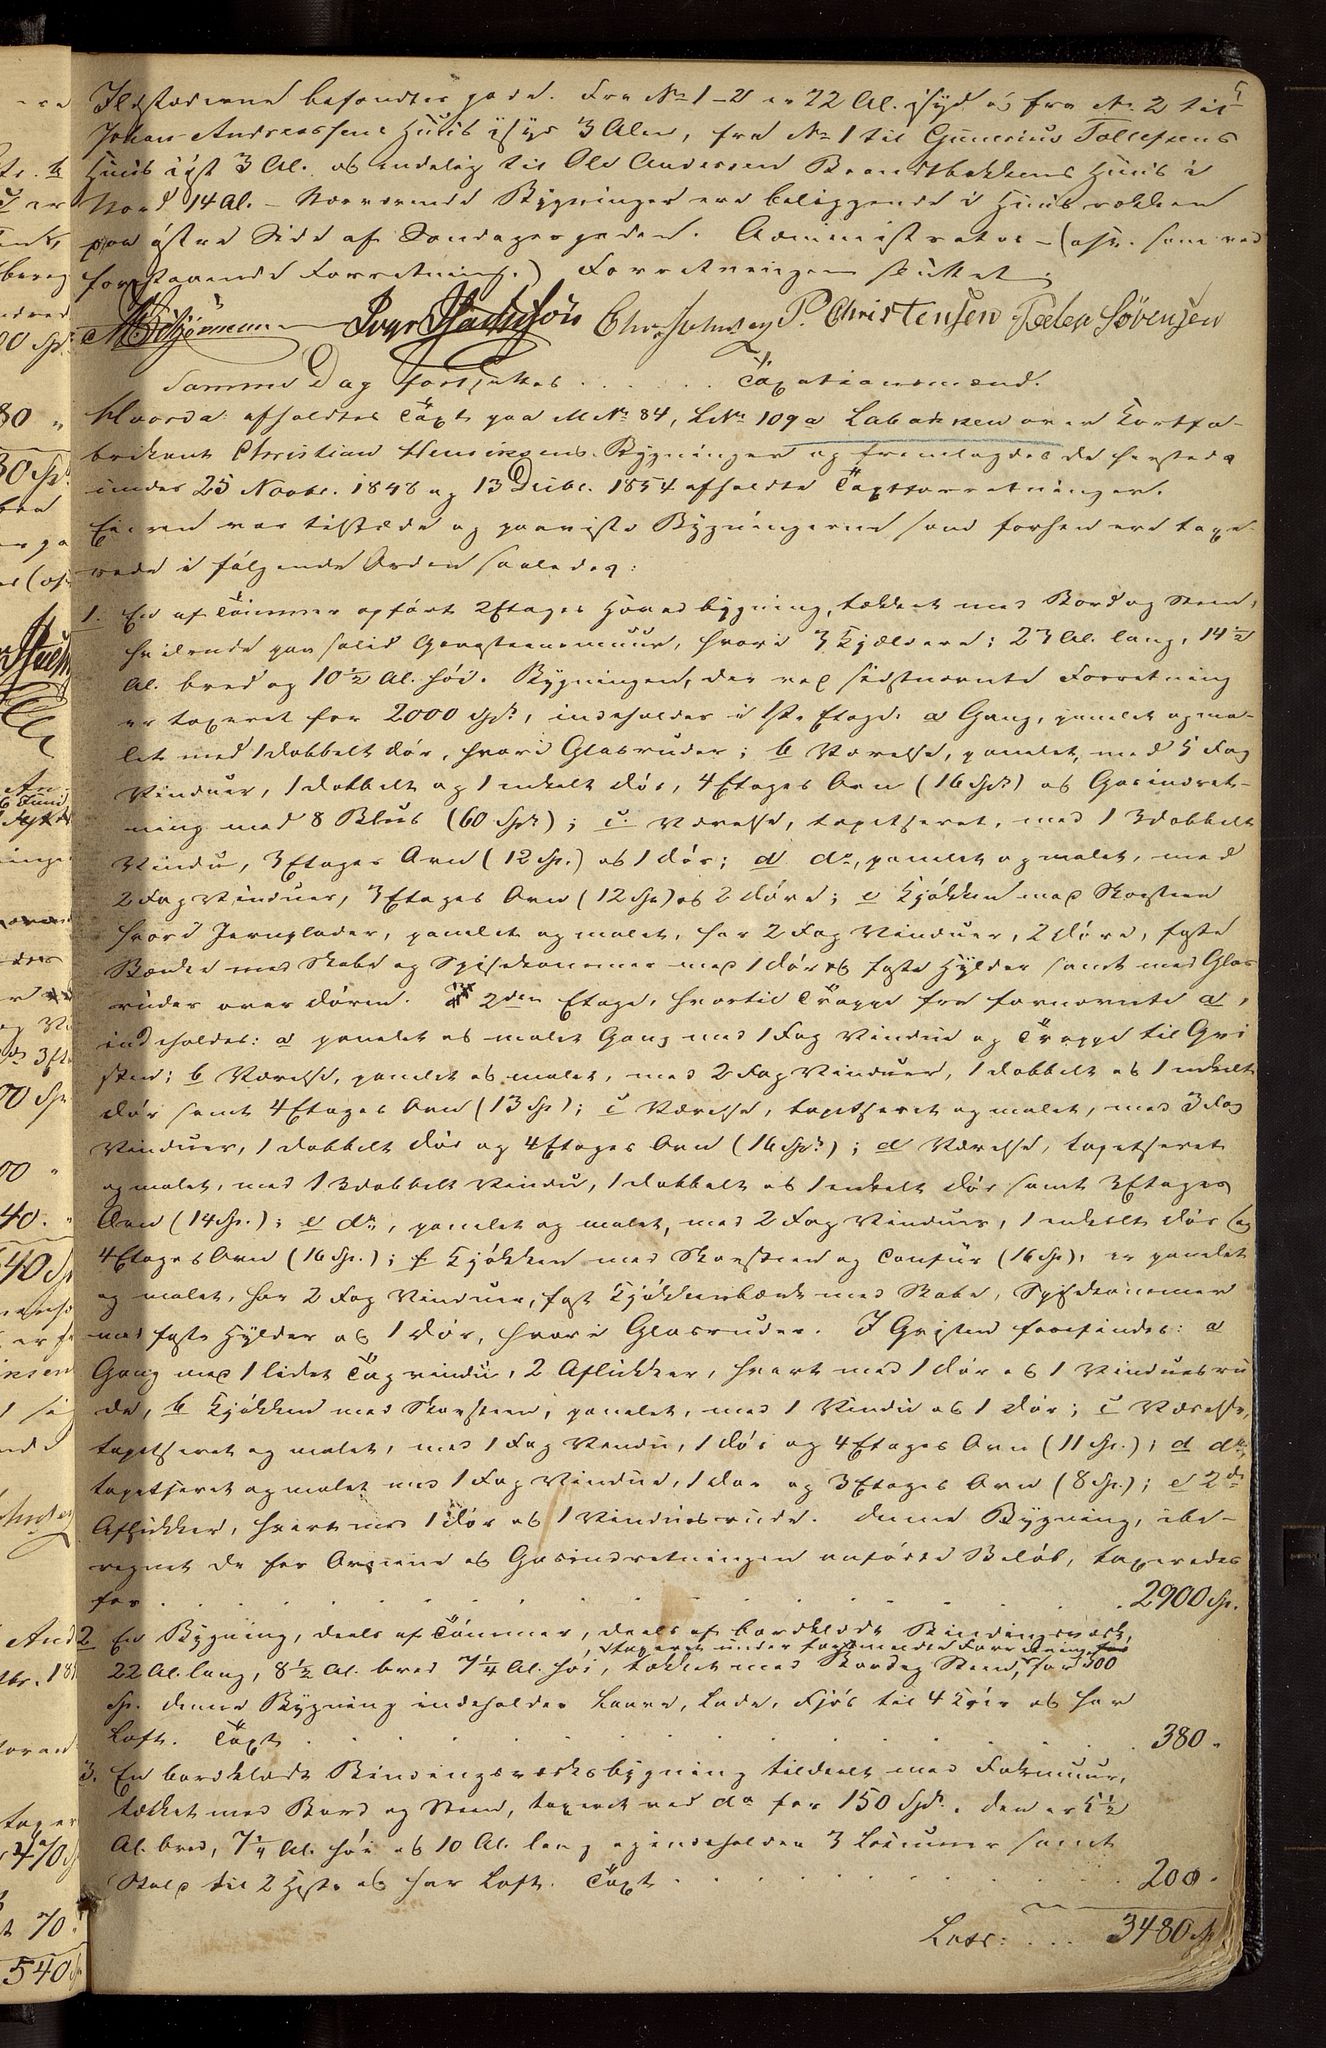 Ildstederne befandtes gode. Fra No 1-2 er 22 Al. i Syd og fra No 2 til
Johan Andreassens Huus i Syd 3 Alen, fra No 1 til Gunerius Tollefsens
Huus i Øst 3 Al. og endelig til Ole Andersen Brandtbakkens Huus i
Nord 14 Al. - Nærværende Bygninger ere beliggende i Huusrækken
paa østre Side af Søndagsgaden. Administrator - (osv. som ved
forestaaende Forretning.) Forretningen sluttet.
Iver Chr. Johnsen P. Christensen Peder Sörensen
Samme Dag fortsattes . . . . . . Taxationsmænd.
Hvorda afholdtes Taxt paa MNo 84, LNo 109a Labakken over Kortfa-
brikant Christian Henriksens Bygninger og fremlagdes de hersteds
under 25 Novbr. 1848 og 13 Decbr. 1854 afholdte Taxtforretninger.
Eieren var tilstede og paaviste Bygningerne som forhen ere taxe-
rede i følgende Orden saaledes:
1. En af Tømmer opført 2 Etages Hovedbygning, tækket med Bord og Steen,
hvilende paa solid Graasteensmuur, hvori 3 Kjældere; 23 Al. lang, 14 1/2
Al. bred og 10 1/2 Al. høi. Bygningen, der ved sidstnævnte Forretning
er taxeret for 2000 Spd, indeholder i 1ste Etage: a Gang, panelet og ma-
let med 1 dobbelt Dør, hvori Glasruder; b Værelse, panelet, med 5 Fag
Vinduer, 1 dobbelt og 1 enkelt Dør, 4 Etages Ovn (16 Spd) og Gasindret-
ning med 8 Blus (60 Spd); c Værelse, tapetseret, med 1 3dobbelt
Vindu, 3 Etages Ovn (12 Sp.) og 1 Dør; d do, panelet og malet, med
2 Fag Vinduer, 3 Etages Ovn (12 Sp) og 2 Døre; e Kjøkken med Skorsteen
hvori Jernplader, panelet og malet, har 2 Fag Vinduer, 2 Døre, faste
Bænke med Skabe og Spisekammer med 1 Dør og faste Hylder samt med Glas-
ruder over Døren. I 2den Etage, hvortil Trappe fra fornævnte a,
indeholdes: a panelet og malet Gang med 1 Fag Vindue og Trappe til Qvi-
sten; b Værelse, panelet og malet, med 2 Fag Vinduer, 1 dobbelt og 1 enkelt
Dør samt 4 Etages Ovn (13 Sp); c Værelse, tapetseret og malet, med 3 Fag
Vinduer, 1 dobbelt Dør og 4 Etages Ovn (16 Spd); d Værelse, tapetseret
og malet, med 1 3dobbelt Vindu, 1 dobbelt og 1 enkelt Dør samt 3 Etages
Ovn (14 Sp.); e do, panelet og malet, med 2 Fag Vinduer, 1 enkelt Dør og
4 Etages Ovn (16 Sp.); f Kjøkken med Skorsteen og Comfur (16 Sp), er panelet
og malet, har 2 Fag Vinduer, fast Kjøkkenbænk med Skabe, Spisekammer
med faste Hylder og 1 Dør, hvori Glasruder. I Qvisten forefindes: a
Gang med 1 lidet Tagvindu, 2 Aflukker, hvert med 1 Dør og 1 Vinduesru-
de, b Kjøkken med Skorsteen, panelet, med 1 Vindu og 1 Dør; c Værelse,
tapetseret og malet, med 1 Fag Vindu, 1 Dør og 4 Etages Ovn (11 Sp.); d do,
tapetseret og malet med 1 Fag Vindue, 1 Dør og 3 Etages Ovn (8 Sp.); e 2de
Aflukker, hvert med 1 Dør og 1 Vinduesrude. Denne Bygning, ibe-
regnet de for Ovnene og Gasindretningen anførte Beløb, taxeredes
for . . . . . . . . . . . 2900 Sp.
2 En Bygning, deels af Tømmer, deels af bordklædt Bindingsværk,
taxeret under fornævnte Forretning
22 Al. lang, 8 1/2 Al. bred 7 1/4 Al. høi, tækket med Bord og Steen, for 300
Sp. Denne Bygning indeholder Laave, Lade, Fjøs til 4 Køer og har
Loft. Taxt . . . . . . . . . . 380 "
3. En bordklædt Bindingsværksbygning tildeels med Fakmuur,
tækket med Bord og Steen, taxeret ved do for 150 Spd. Den er 5 1/2
Al. bred, 7 1/4 Al. høi og 10 Al. lang og indeholder 3 Locummer samt
Stald til 2 Heste og har Loft. Taxt . . . . . . 200 "
Lats: . . . 3480 Sp